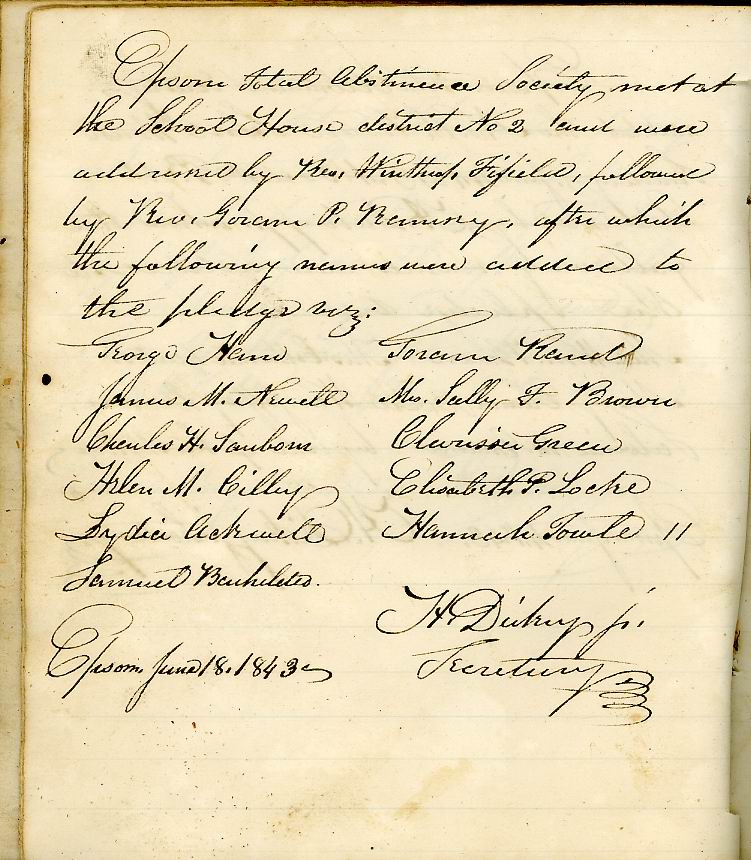 Epsom Total Abstinence Society met at
the School House district No 2 and were
addressed by Rev. Winthrop Fifield, followed
by Rev. Goram P. Ramsey, after which
the following names were added to
the pledge viz:
George Ham Goram Rand
James M. Newell Mrs. Sally F. Brown
Charles H. Sanborn Clarissa Green
Helen M. Cilley Elisabeth P. Locke
Lydia Ackwell Hannah Towle 11
Samuel Bachelder.
H. Dickey jr.
Epsom June 18. 1843 Secretary